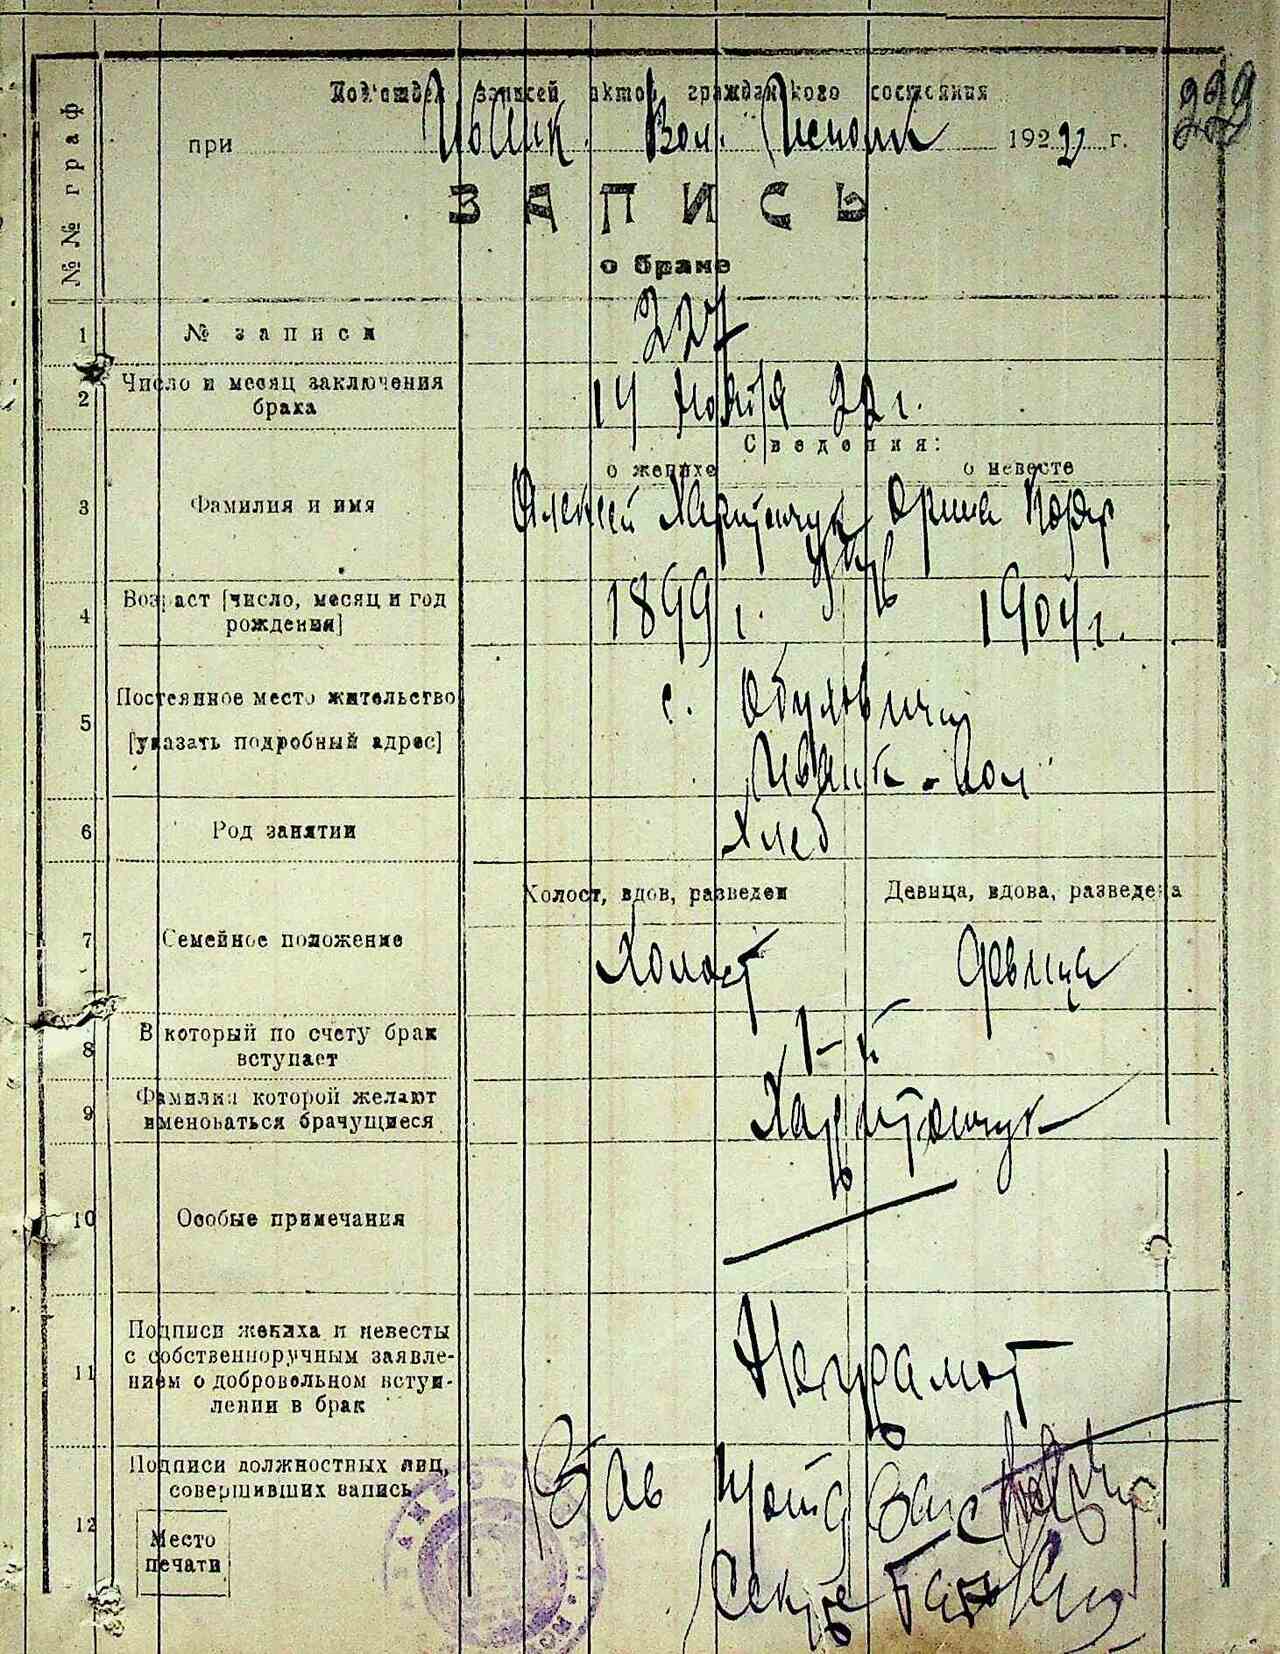 №№ граф
Подотдел записей актов гражданского состояния
222
при Иванк. Вол. Исполк 1922 г.
ЗАПИСЬ
о браке
1 № записи 227
2 Число и месяц заключения брака 14 Ноября 22 г.
Сведения:
о женихе о невесте
3 Фамилия и имя Алексей Харитончук Орина
4 Возраст [число, месяц и год рождения] 1899 г. 1904 г.
5 Постоянное место жительство [указать подробный адрес] с.
Иванк. вол
6 Род занятии Хлеб
Холост, вдов, разведен Девица, вдова, разведена
7 Семейное положение Холост Девица
8 В который по счету брак вступает 1-й
9 Фамилия которой желают именоваться брачущиеся Харитончук
10 Особые примечания
11 Подписи жениха и невесты с собственноручным заявлением о добровольном вступлении в брак Неграмот
12 Подписи должностных лиц, совершивших запись Зав
Место печати Секре